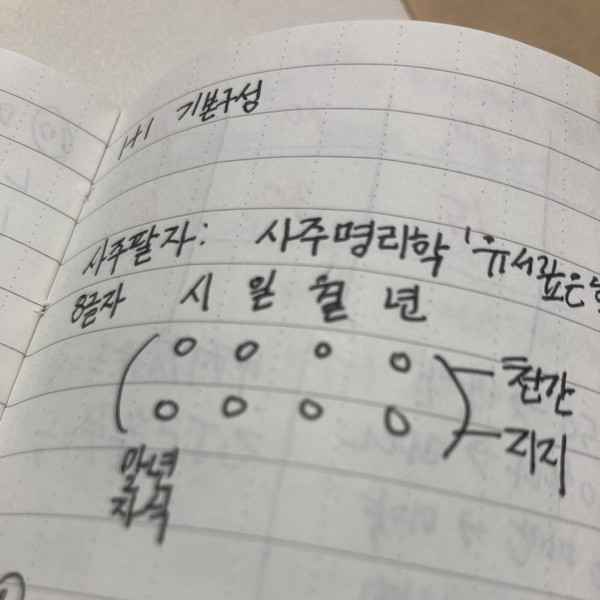 1+1 기본구성
사주팔자: 사주명리학 '유서깊은
8글자 시 일 월 년
천간
지지
말년
자식